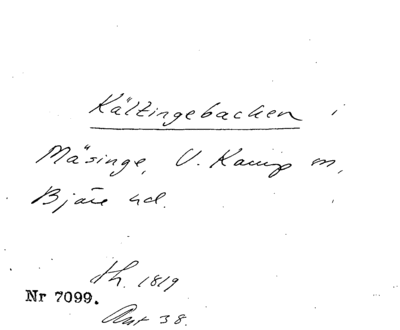 Kältingebacken i
Mäsinge, V. Karup sn,
Bjäre hd.
th. 1819
Nr 7099.
Ant 38.